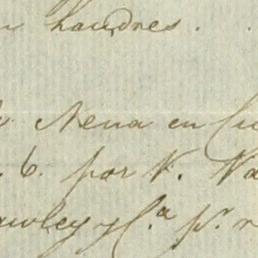 Londres.
Nena en
6. por N. Va
awley y C.ª p.r